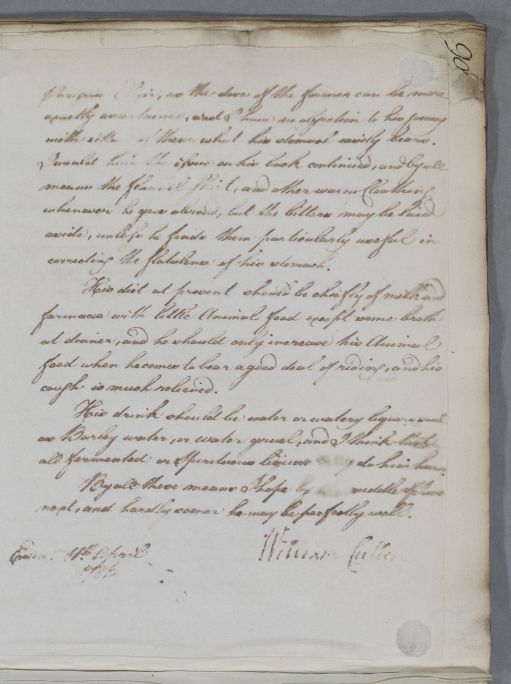 90
as the dose of the former can be more
exactly ascertained, and I have no objection to his going
with of them what his stomach easily bears.
I would have the issue on his back continued, and by all
means the flannel shirt, and other warm Cloathing
whenever he goes abroad, but the bitters may be laid
aside, unless he finds them particularly useful in
correcting the flatulence of his stomach.
His diet at present should be chiefly of milk and
farinacea with little Animal food except some broth
at dinner, and he should only increase his Animal
food when he comes to bear a good deal of riding, and his
cough is much relieved.
His drink should be water or watery liquors such
as Barley water, or water gruel, and I think that
all fermented or Spirituous liquors do him harm
By all these means I hope by middle of June
next, and hardly sooner he may be perfectly well.
William Cullen
April